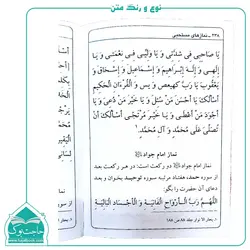 نوع و رنگ متن
۲۳۸ . نمازهای مستحبی
يَا صَاحِبِي فِي شِدَّتِي وَ يَا وَلِيِّي فِي نِعْمَتِي وَ يَا
إِلٰهِي وَ إِلٰهَ إِبْرَاهِيمَ وَ إِسْمَاعِيلَ وَ إِسْحَاقَ وَ
يَعْقُوبَ يَا رَبَّ كهيعص وَ يس وَ الْقُرْآنِ الْحَكِيمِ
أَسْأَلُكَ يَا أَحْسَنَ مَنْ سُئِلَ وَ يَا خَيْرَ مَنْ دُعِيَ وَ يَا
أَجْوَدَ مَنْ أَعْطَى وَ يَا خَيْرَ مُرْتَجًى أَسْأَلُكَ أَنْ
تُصَلِّيَ عَلَى مُحَمَّدٍ وَ آلِ مُحَمَّدٍ.
نماز امام جواد
نماز امام جواد دو رکعت است: در هر رکعت بعد
از سوره حمد، هفتاد مرتبه سوره توحید بخوان و بعد
دعای آن حضرت را بگو:
اللّٰهُمَّ رَبَّ الْأَرْوَاحِ الْفَانِيَةِ وَ الْأَجْسَادِ الْبَالِيَةِ
حاجت‌بوک